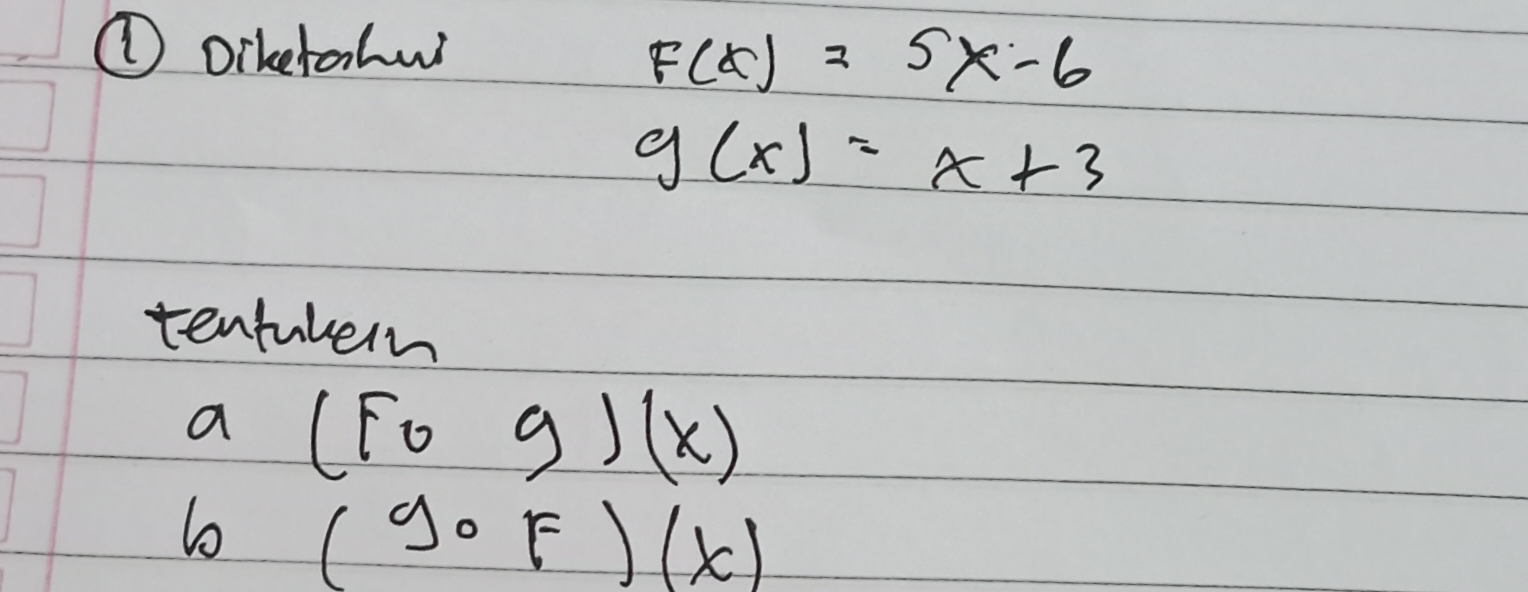 ① Diketahui F(x) = 5x-6
g(x) = x+3
tentukan
a (Fo g)(x)
b (go F)(x)